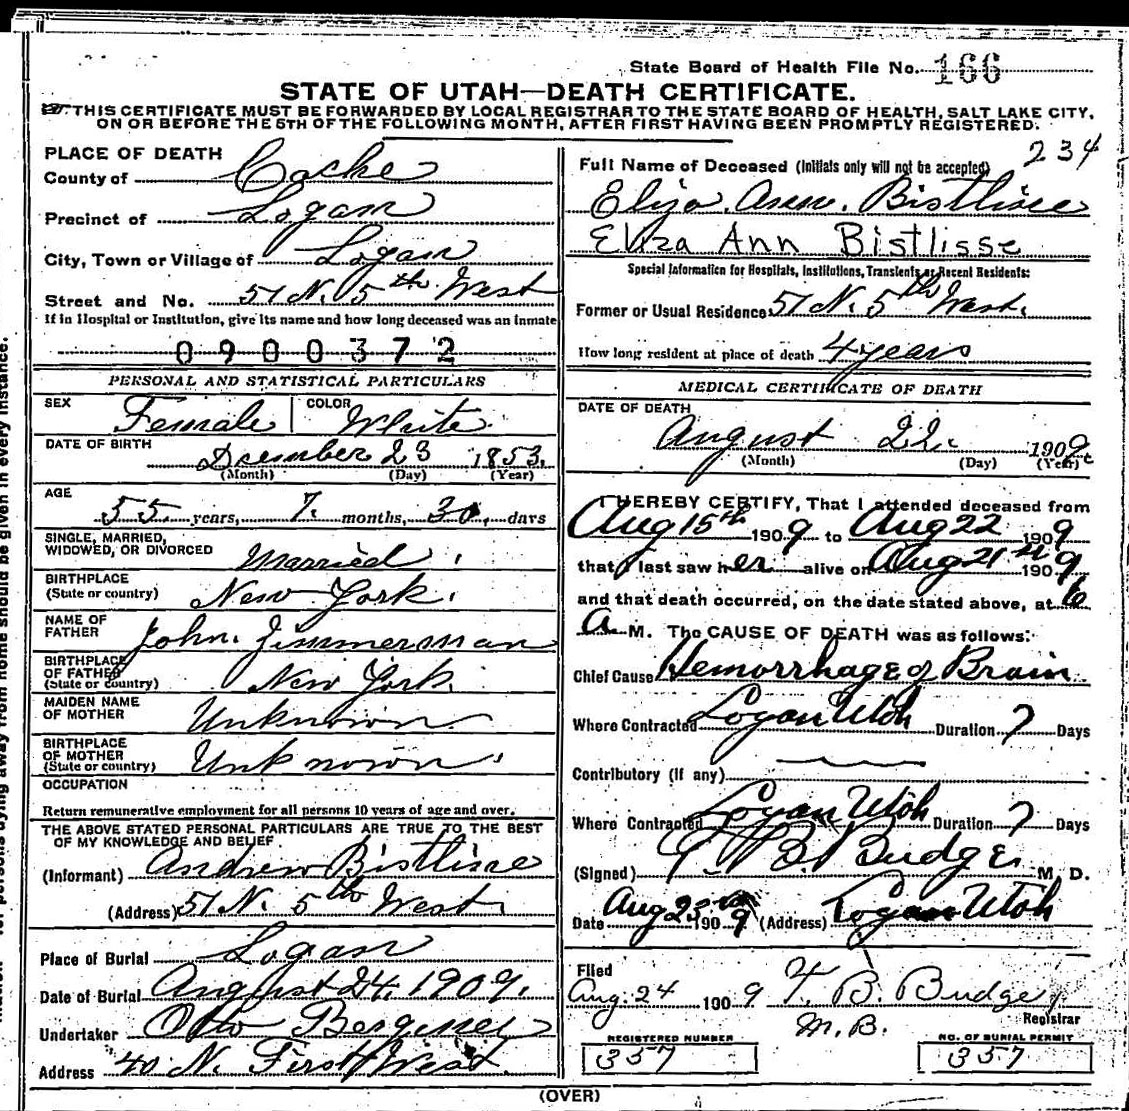 State Board of Health File No. 166
STATE OF UTAH—DEATH CERTIFICATE.
THIS CERTIFICATE MUST BE FORWARDED BY LOCAL REGISTRAR TO THE STATE BOARD OF HEALTH, SALT LAKE CITY,
ON OR BEFORE THE 5TH OF THE FOLLOWING MONTH, AFTER FIRST HAVING BEEN PROMPTLY REGISTERED.
234
PLACE OF DEATH
County of Cache
Precinct of Logan
City, Town or Village of Logan
Street and No. 51 N. 5th West
If in Hospital or Institution, give its name and how long deceased was an inmate
0900372
PERSONAL AND STATISTICAL PARTICULARS
SEX Female COLOR White
DATE OF BIRTH December 23 1853.
(Month) (Day) (Year)
AGE
55 years, 7. months, 30. days
SINGLE, MARRIED,
WIDOWED, OR DIVORCED Married
BIRTHPLACE
(State or country) New York.
NAME OF
FATHER John. Zimmerman
BIRTHPLACE
OF FATHER
(State or country) New York.
MAIDEN NAME
OF MOTHER Unknown
BIRTHPLACE
OF MOTHER
(State or country) Unknown
OCCUPATION
Return remunerative employment for all persons 10 years of age and over.
THE ABOVE STATED PERSONAL PARTICULARS ARE TRUE TO THE BEST
OF MY KNOWLEDGE AND BELIEF
(Informant) Andrew Bistline
(Address) 51 N. 5th West
Place of Burial Logan
Date of Burial August 24. 1909.
Undertaker Otto
Address 40 N. First West
Full Name of Deceased (Initials only will not be accepted)
Eliza. Ann. Bistline
Eliza Ann Bistlisse
Special Information for Hospitals, Institutions, Transients or Recent Residents:
Former or Usual Residence 51 N. 5th West.
How long resident at place of death 4 years
MEDICAL CERTIFICATE OF DEATH
DATE OF DEATH
August 22. 1909
(Month) (Day) (Year)
I HEREBY CERTIFY, That I attended deceased from
Aug 15th 1909 to Aug 22 1909
that I last saw her alive on Aug 21st 1909
and that death occurred, on the date stated above, at 6
A M. The CAUSE OF DEATH was as follows:
Chief Cause Hemorrhage of Brain
Where Contracted Logan Utah Duration 7 Days
Contributory (if any)
Where Contracted Logan Utah Duration 7 Days
(Signed) T B. Budge M. D.
Date Aug 23rd 1909 (Address) Logan Utah
Filed
Aug. 24 1909 T. B. Budge
Registrar
M.B.
REGISTERED NUMBER
357
NO. OF BURIAL PERMIT
357
(OVER)